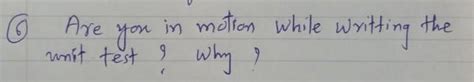 ⑥ Are you in motion while writting the
unit test ? Why ?